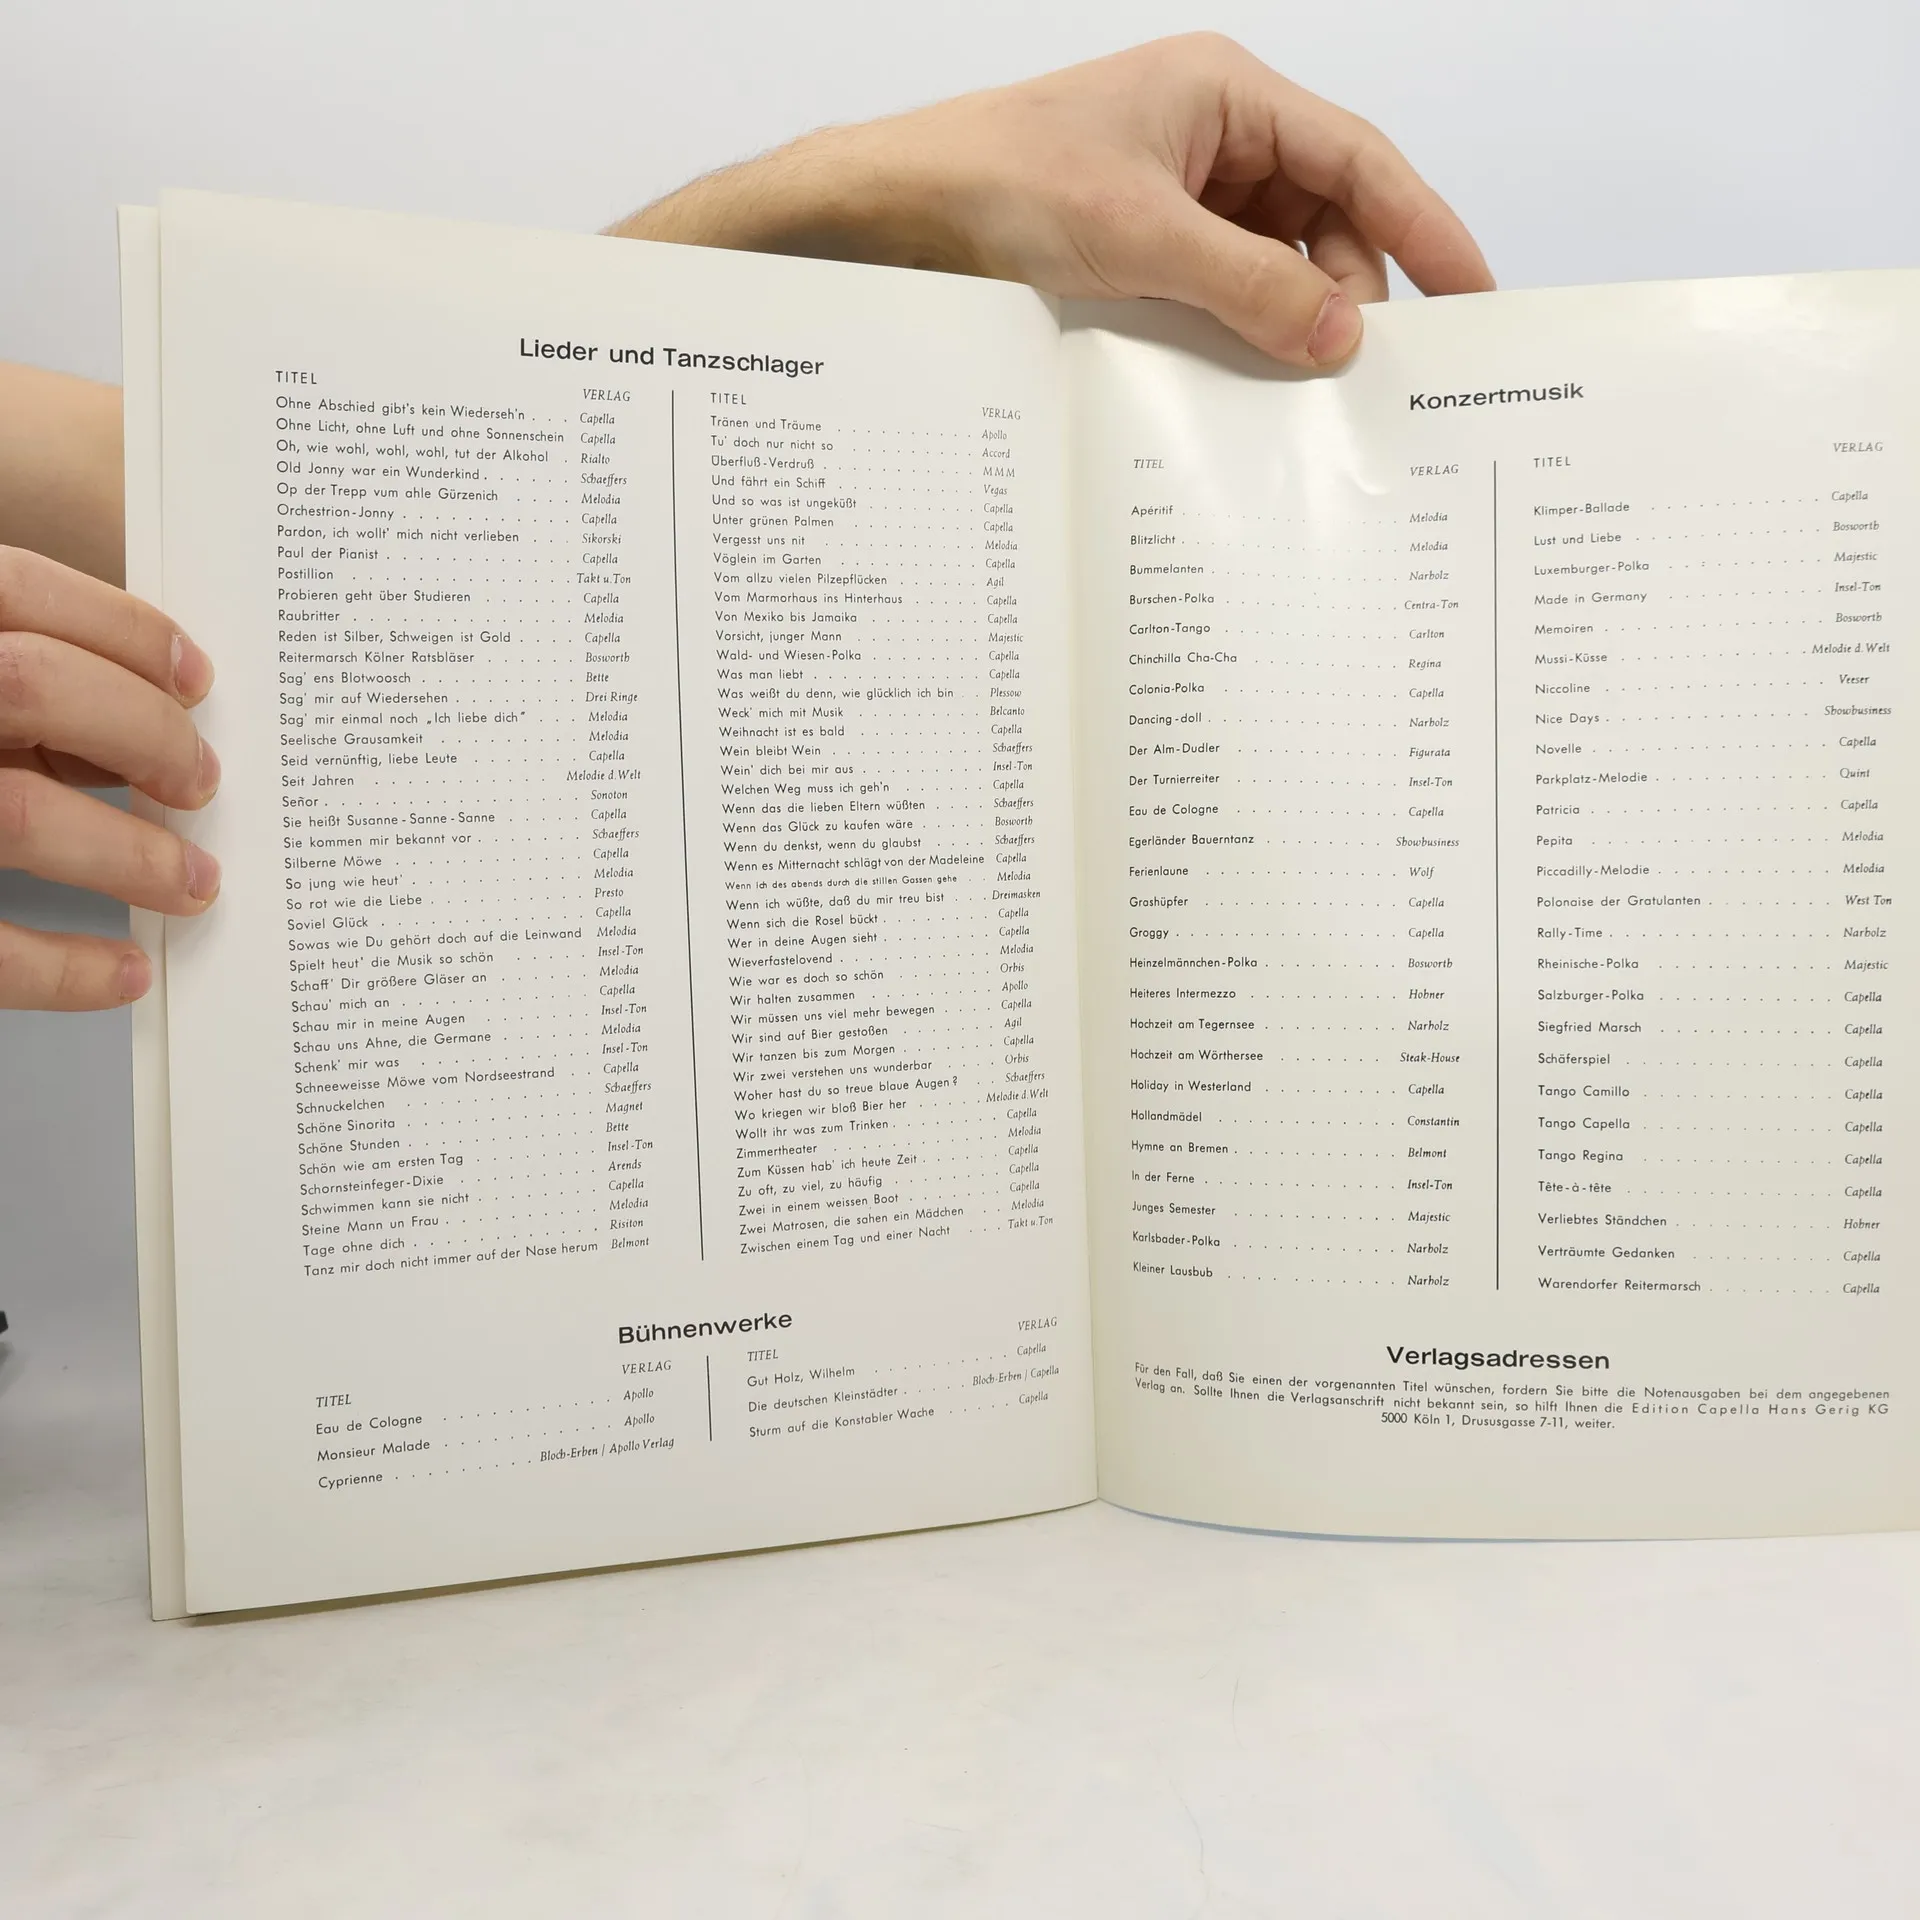 Lieder und Tanzschlager
TITEL VERLAG
Ohne Abschied gibt's kein Wiederseh'n . . . Capella
Ohne Licht, ohne Luft und ohne Sonnenschein Capella
Oh, wie wohl, wohl, wohl, tut der Alkohol . Rialto
Old Jonny war ein Wunderkind . . . . . . Schaeffers
Op der Trepp vum ahle Gürzenich . . . . Melodia
Orchestrion-Jonny . . . . . . . . . . . Capella
Pardon, ich wollt' mich nicht verlieben . . . Sikorski
Paul der Pianist . . . . . . . . . . . Capella
Postillion . . . . . . . . . . . . Takt u. Ton
Probieren geht über Studieren . . . . . . Capella
Raubritter . . . . . . . . . . . . . Melodia
Reden ist Silber, Schweigen ist Gold . . . . Capella
Reitermarsch Kölner Ratsbläser . . . . . . Bosworth
Sag' ens Blotwoosch . . . . . . . . . Bette
Sag' mir auf Wiedersehen . . . . . . . . Drei Ringe
Sag' mir einmal noch „Ich liebe dich“ . . . Melodia
Seelische Grausamkeit . . . . . . . . . Melodia
Seid vernünftig, liebe Leute . . . . . . . Capella
Seit Jahren . . . . . . . . . . . Melodie d. Welt
Señor . . . . . . . . . . . . . . Sonoton
Sie heißt Susanne-Sanne-Sanne . . . . . Capella
Sie kommen mir bekannt vor . . . . . . . Schaeffers
Silberne Möwe . . . . . . . . . . . Capella
So jung wie heut' . . . . . . . . . . Melodia
So rot wie die Liebe . . . . . . . . . Presto
Soviel Glück . . . . . . . . . . . . Capella
Sowas wie Du gehört doch auf die Leinwand Melodia
Spielt heut' die Musik so schön . . . . . Insel-Ton
Schaff' Dir größere Gläser an . . . . . . Melodia
Schau' mich an . . . . . . . . . . . Capella
Schau mir in meine Augen . . . . . . . Insel-Ton
Schau uns Ahne, die Germane . . . . . . Melodia
Schenk' mir was . . . . . . . . . . Insel-Ton
Schneeweisse Möwe vom Nordseestrand . . Capella
Schnuckelchen . . . . . . . . . . . Schaeffers
Schöne Sinorita . . . . . . . . . . . Magnet
Schöne Stunden . . . . . . . . . . . Bette
Schön wie am ersten Tag . . . . . . . . Insel-Ton
Schornsteinfeger-Dixie . . . . . . . . . Arends
Schwimmen kann sie nicht . . . . . . . . Capella
Steine Mann un Frau . . . . . . . . . Melodia
Tage ohne dich . . . . . . . . . . . Risiton
Tanz mir doch nicht immer auf der Nase herum Belmont
TITEL VERLAG
Tränen und Träume . . . . . . . . . . Apollo
Tu' doch nur nicht so . . . . . . . . . Accord
Überfluß-Verdruß . . . . . . . . . . MMM
Und fährt ein Schiff . . . . . . . . . . Vegas
Und so was ist ungeküßt . . . . . . . . Capella
Unter grünen Palmen . . . . . . . . . Capella
Vergesst uns nit . . . . . . . . . . . Melodia
Vöglein im Garten . . . . . . . . . . Capella
Vom allzu vielen Pilzepflücken . . . . . . Agil
Vom Marmorhaus ins Hinterhaus . . . . . Capella
Von Mexiko bis Jamaika . . . . . . . . Capella
Vorsicht, junger Mann . . . . . . . . . Majestic
Wald- und Wiesen-Polka . . . . . . . . Capella
Was man liebt . . . . . . . . . . . Capella
Was weißt du denn, wie glücklich ich bin . . Plessow
Weck' mich mit Musik . . . . . . . . . Belcanto
Weihnacht ist es bald . . . . . . . . . Capella
Wein bleibt Wein . . . . . . . . . . Schaeffers
Wein' dich bei mir aus . . . . . . . . Insel-Ton
Welchen Weg muss ich geh'n . . . . . . Capella
Wenn das die lieben Eltern wüßten . . . . Schaeffers
Wenn das Glück zu kaufen wäre . . . . . Bosworth
Wenn du denkst, wenn du glaubst . . . . Schaeffers
Wenn es Mitternacht schlägt von der Madeleine Capella
Wenn ich des abends durch die stillen Gassen gehe . . Melodia
Wenn ich wüßte, daß du mir treu bist . . . Dreimasken
Wenn sich die Rosel bückt . . . . . . . . Capella
Wer in deine Augen sieht . . . . . . . . Capella
Wieverfastelovend . . . . . . . . . . Melodia
Wie war es doch so schön . . . . . . . Orbis
Wir halten zusammen . . . . . . . . . Apollo
Wir müssen uns viel mehr bewegen . . . . Capella
Wir sind auf Bier gestoßen . . . . . . . Agil
Wir tanzen bis zum Morgen . . . . . . . Capella
Wir zwei verstehen uns wunderbar . . . . Orbis
Woher hast du so treue blaue Augen? . . Schaeffers
Wo kriegen wir bloß Bier her . . . . . Melodie d. Welt
Wollt ihr was zum Trinken . . . . . . . . Capella
Zimmertheater . . . . . . . . . . . Melodia
Zum Küssen hab' ich heute Zeit . . . . . . Capella
Zu oft, zu viel, zu häufig . . . . . . . . Capella
Zwei in einem weissen Boot . . . . . . . Capella
Zwei Matrosen, die sahen ein Mädchen . . Melodia
Zwischen einem Tag und einer Nacht . . . Takt u. Ton
Bühnenwerke
TITEL VERLAG
Eau de Cologne . . . . . . . . . . Apollo
Monsieur Malade . . . . . . . . . . Apollo
Cyprienne . . . . . . . . Bloch-Erben / Apollo Verlag
TITEL VERLAG
Gut Holz, Wilhelm . . . . . . . . . . Capella
Die deutschen Kleinstädter . . . . . Bloch-Erben / Capella
Sturm auf die Konstabler Wache . . . . . Capella
Konzertmusik
TITEL VERLAG
Apéritif . . . . . . . . . . . . . Melodia
Blitzlicht . . . . . . . . . . . . . Melodia
Bummelanten . . . . . . . . . . . Narholz
Burschen-Polka . . . . . . . . . . Centra-Ton
Carlton-Tango . . . . . . . . . . . Carlton
Chinchilla Cha-Cha . . . . . . . . . Regina
Colonia-Polka . . . . . . . . . . . Capella
Dancing-doll . . . . . . . . . . . . Narholz
Der Alm-Dudler . . . . . . . . . . Figurata
Der Turnierreiter . . . . . . . . . . Insel-Ton
Eau de Cologne . . . . . . . . . . Capella
Egerländer Bauerntanz . . . . . . . Showbusiness
Ferienlaune . . . . . . . . . . . . Wolf
Grashüpfer . . . . . . . . . . . . Capella
Groggy . . . . . . . . . . . . . . Capella
Heinzelmännchen-Polka . . . . . . . . Bosworth
Heiteres Intermezzo . . . . . . . . . Hohner
Hochzeit am Tegernsee . . . . . . . . Narholz
Hochzeit am Wörthersee . . . . . . . Steak-House
Holiday in Westerland . . . . . . . . Capella
Hollandmädel . . . . . . . . . . . Constantin
Hymne an Bremen . . . . . . . . . . Belmont
In der Ferne . . . . . . . . . . . . Insel-Ton
Junges Semester . . . . . . . . . . Majestic
Karlsbader-Polka . . . . . . . . . . Narholz
Kleiner Lausbub . . . . . . . . . . Narholz
TITEL VERLAG
Klimper-Ballade . . . . . . . . . . Capella
Lust und Liebe . . . . . . . . . . . Bosworth
Luxemburger-Polka . . . . . . . . . Majestic
Made in Germany . . . . . . . . . . Insel-Ton
Memoiren . . . . . . . . . . . . . Bosworth
Mussi-Küsse . . . . . . . . . . Melodie d. Welt
Niccoline . . . . . . . . . . . . . Veeser
Nice Days . . . . . . . . . . . . Showbusiness
Novelle . . . . . . . . . . . . . Capella
Parkplatz-Melodie . . . . . . . . . . Quint
Patricia . . . . . . . . . . . . . Capella
Pepita . . . . . . . . . . . . . . Melodia
Piccadilly-Melodie . . . . . . . . . . Melodia
Polonaise der Gratulanten . . . . . . . West Ton
Rally-Time . . . . . . . . . . . . Narholz
Rheinische-Polka . . . . . . . . . . Majestic
Salzburger-Polka . . . . . . . . . . Capella
Siegfried Marsch . . . . . . . . . . Capella
Schäferspiel . . . . . . . . . . . . Capella
Tango Camillo . . . . . . . . . . . Capella
Tango Capella . . . . . . . . . . . Capella
Tango Regina . . . . . . . . . . . Capella
Tête-à-tête . . . . . . . . . . . . Capella
Verliebtes Ständchen . . . . . . . . . Hohner
Verträumte Gedanken . . . . . . . . Capella
Warendorfer Reitermarsch . . . . . . . Capella
Verlagsadressen
Für den Fall, daß Sie einen der vorgenannten Titel wünschen, fordern Sie bitte die Notenausgaben bei dem angegebenen
Verlag an. Sollte Ihnen die Verlagsanschrift nicht bekannt sein, so hilft Ihnen die Edition Capella Hans Gerig KG
5000 Köln 1, Drususgasse 7-11, weiter.